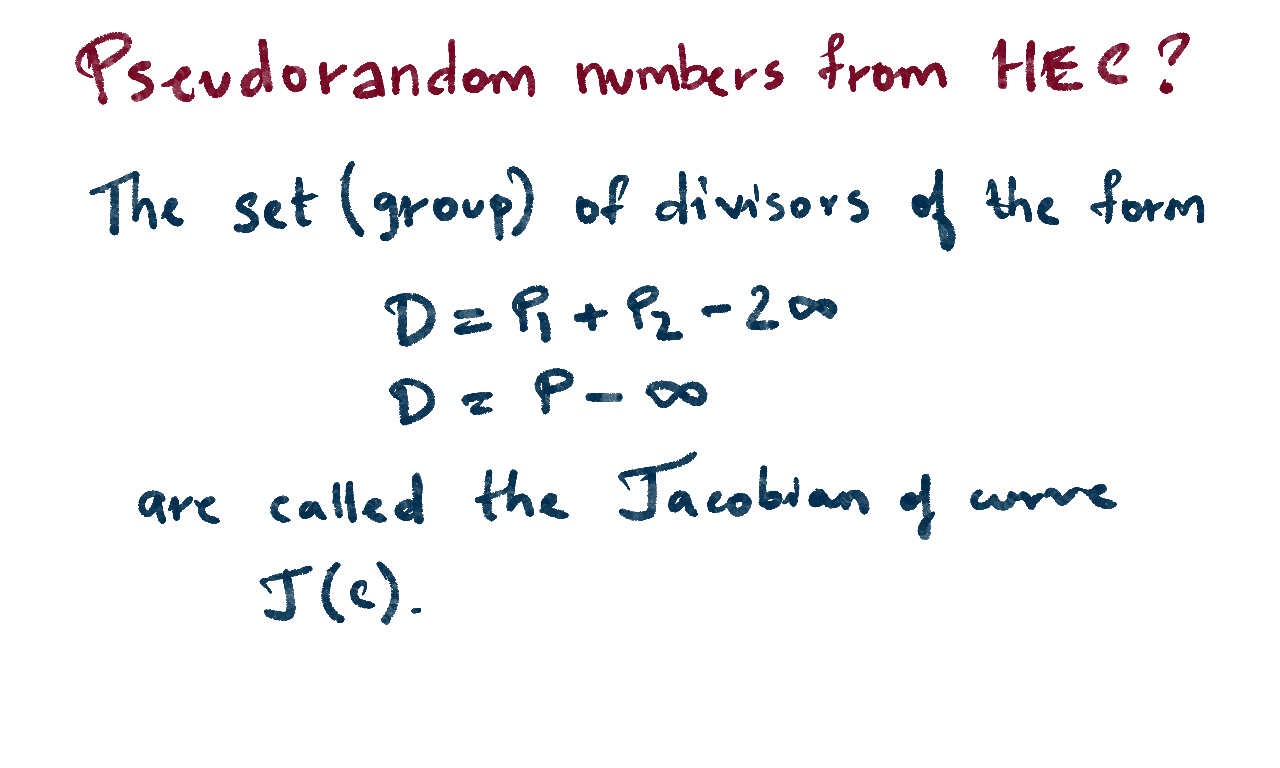 Pseudorandom numbers from HEC?
The set (group) of divisors of the form
D = P₁ + P₂ - 2∞
D = P - ∞
are called the Jacobian of curve
J(C).